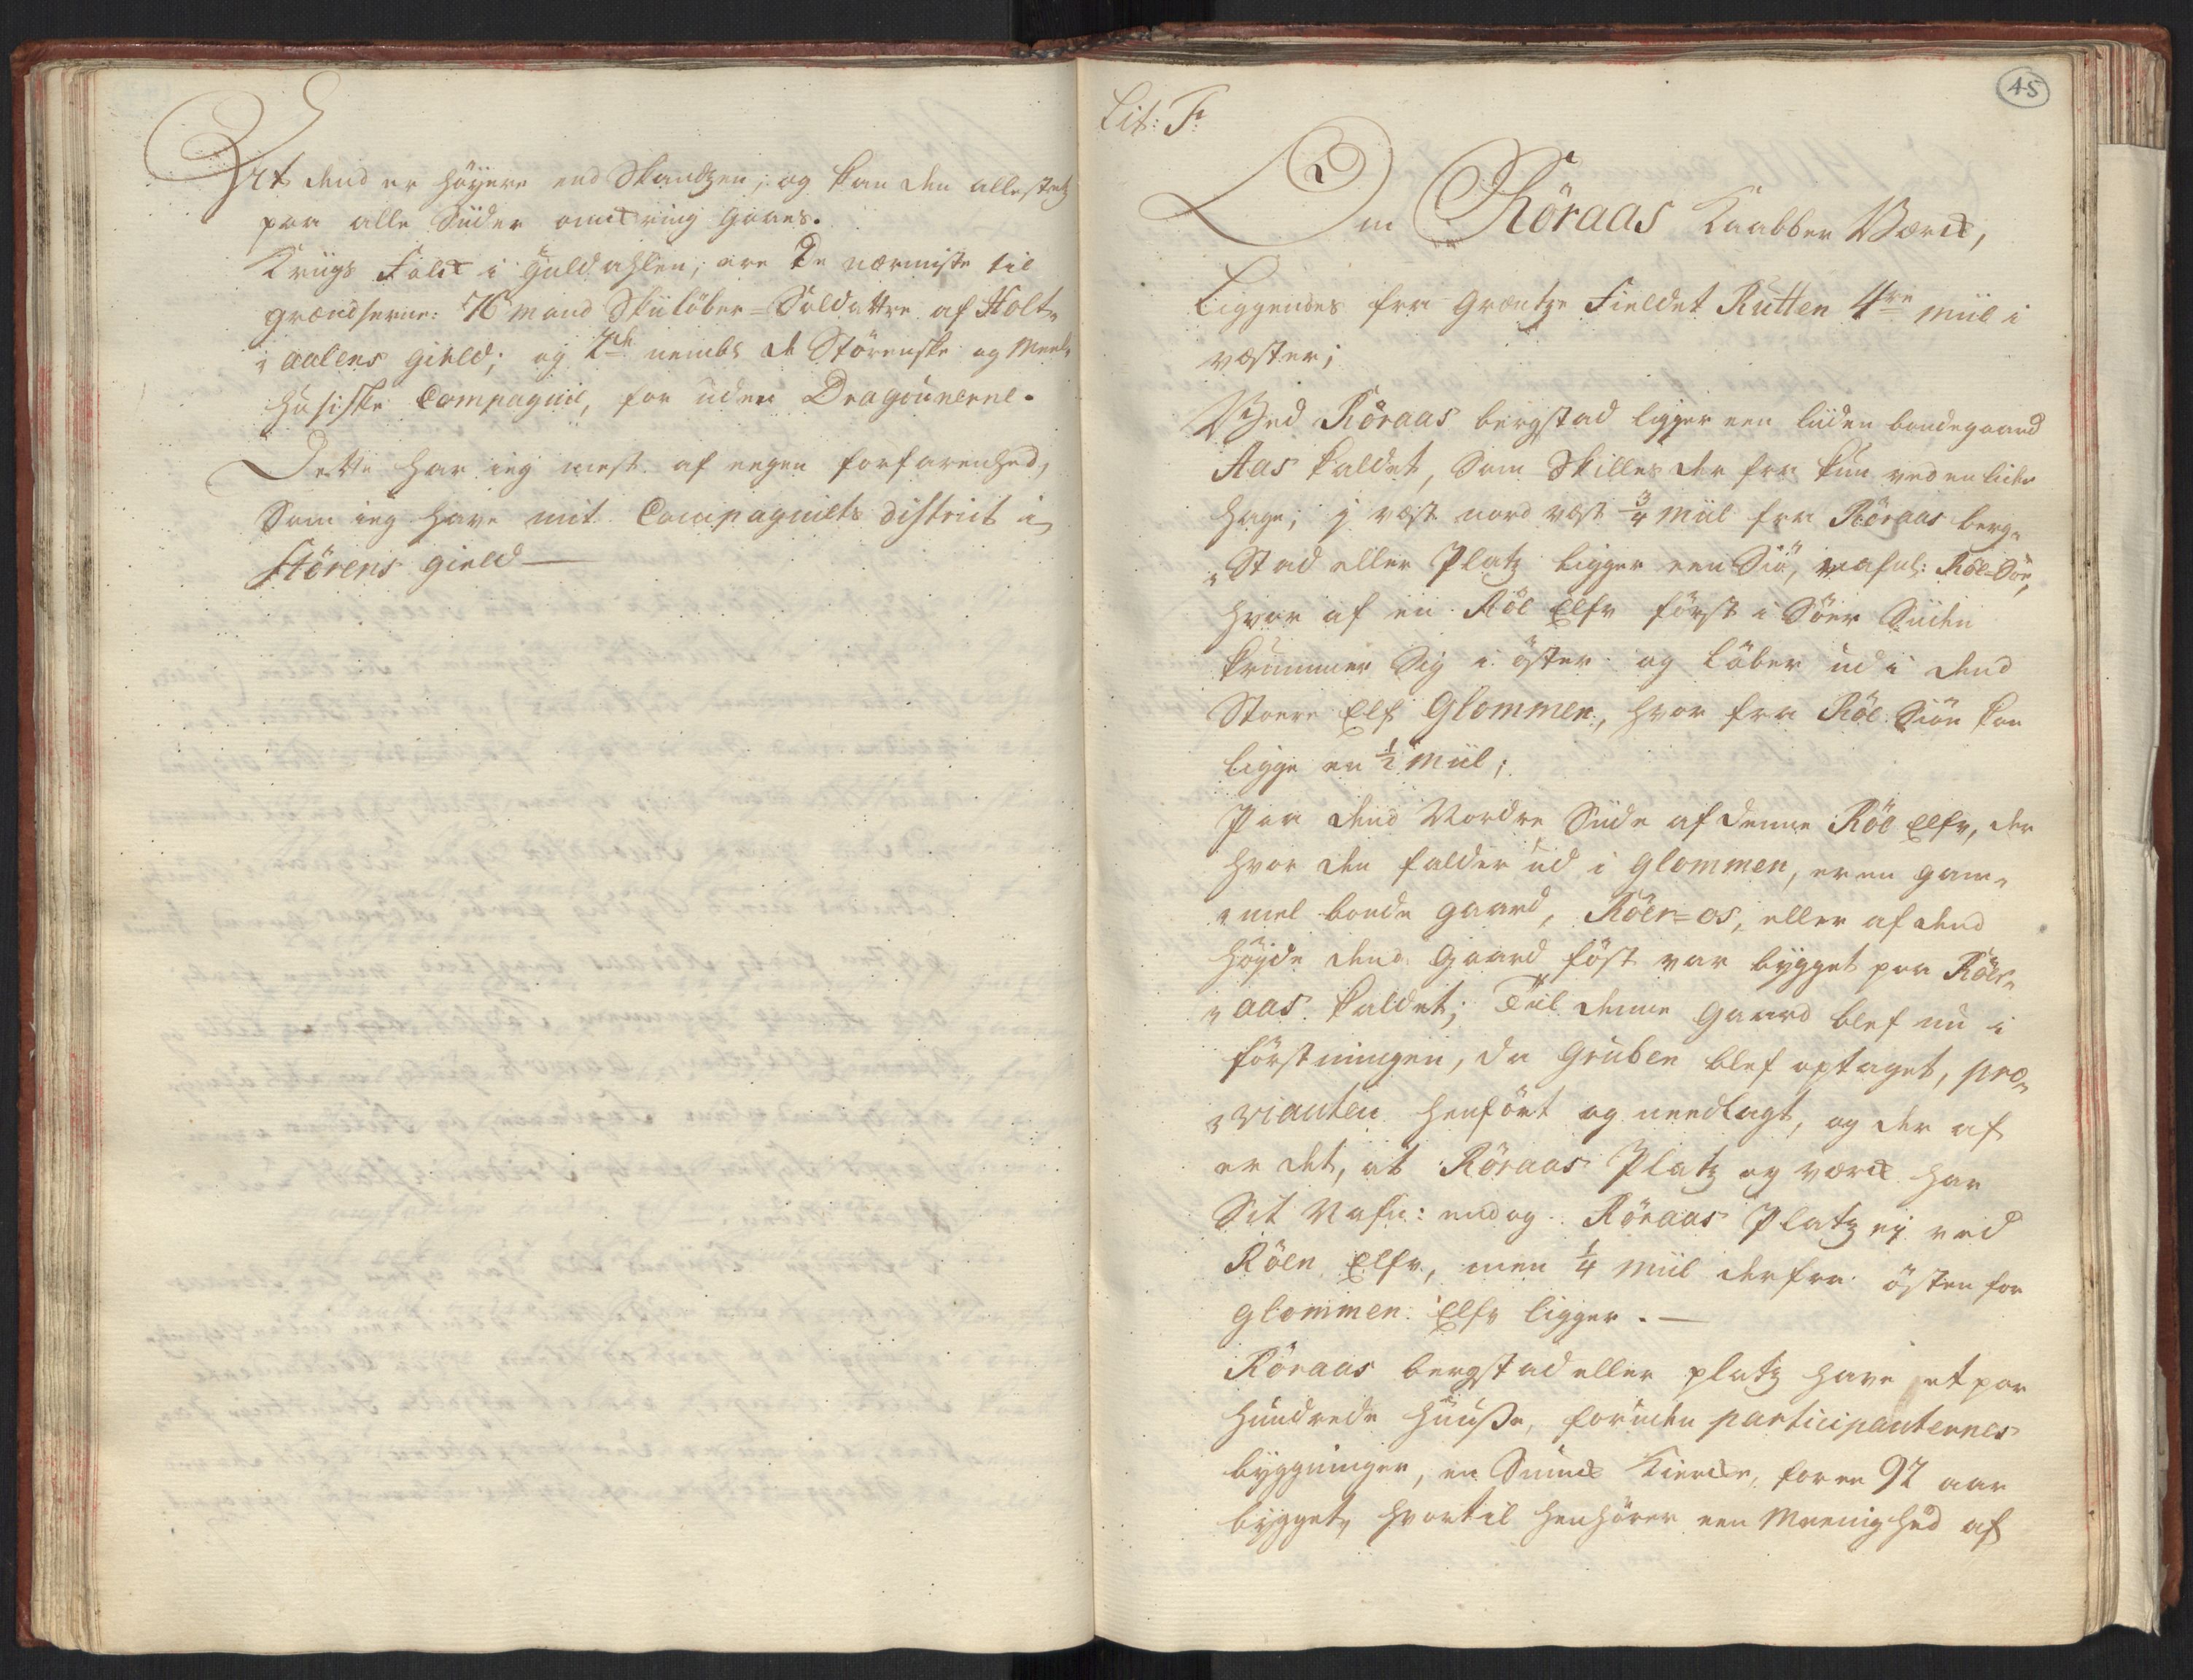 Hvt dend er höyere end Skandtzen; og kan den allestetz
paa alle Siider omkring gaaes.
Kriigs Folck i Guldahlen, ere de nærmiste til
grændserne: 76 mand Skiilöber-Soldattre af Holt-
aalens gield; og 2de nembl de Störenske og Meel-
husiske Compagnie, for uden Dragounerne.
Dette har ieg mest af eegen forfarenhed,
Som ieg have mit Compagniets district i
Störens gield —
Lit: F:
45
Om Röraas Kaabber Værck,
Liggendes fra Grentze Fieldet Rutten 4re miil i
vester;
Ved Röraas bergstad ligger een liiden bondegaard
Aas kaldet, Som Skilles der fra kun ved en liden
hage; i vest nord vest 3/4 miil fra Röraas berg-
Stad eller Platz ligger een Siö, nafnl: Röe-Söe,
hvor af en Röe Elfv först i Söer Siiden
krummer Sig i öster og löber ud i dend
Stoere Elf Glommen, hvor fra Röe Siöe kan
ligge en 1/2 miil;
Paa dend Nordre Siide af denne Röe Elfv, der
hvor den falder ud i Glommen, er en gam-
mel bonde gaard, Röer-os, eller af dend
höyde dend gaard föst var bygget paa Röer-
aas kaldet; Till denne gaard blef nu i
förstningen, da gruben blef optaget, pro-
vianten henfört og needlagt, og der af
er det, at Röraas Platz og værck har
Sit Nafn: endog Röraas Platz ey ved
Röen Elfv, men 1/4 miil derfra östen for
Glommen Elfv ligger. —
Röraas bergstad eller platz have et par
hundrede huuße, foruden participanternes
bygninger, en Smuck Kiercke, for en 92 aar
bygget, hvortil henhörer een Meenighed af